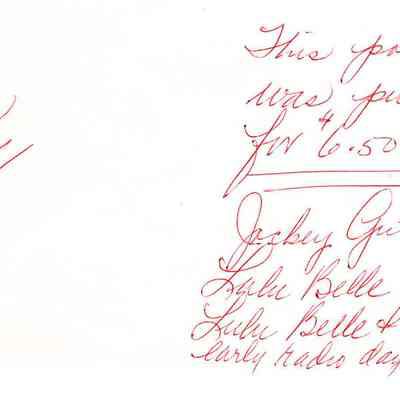 This
was
for $6.50
Jackey
Lulu Belle
Lulu Belle &
early radio day